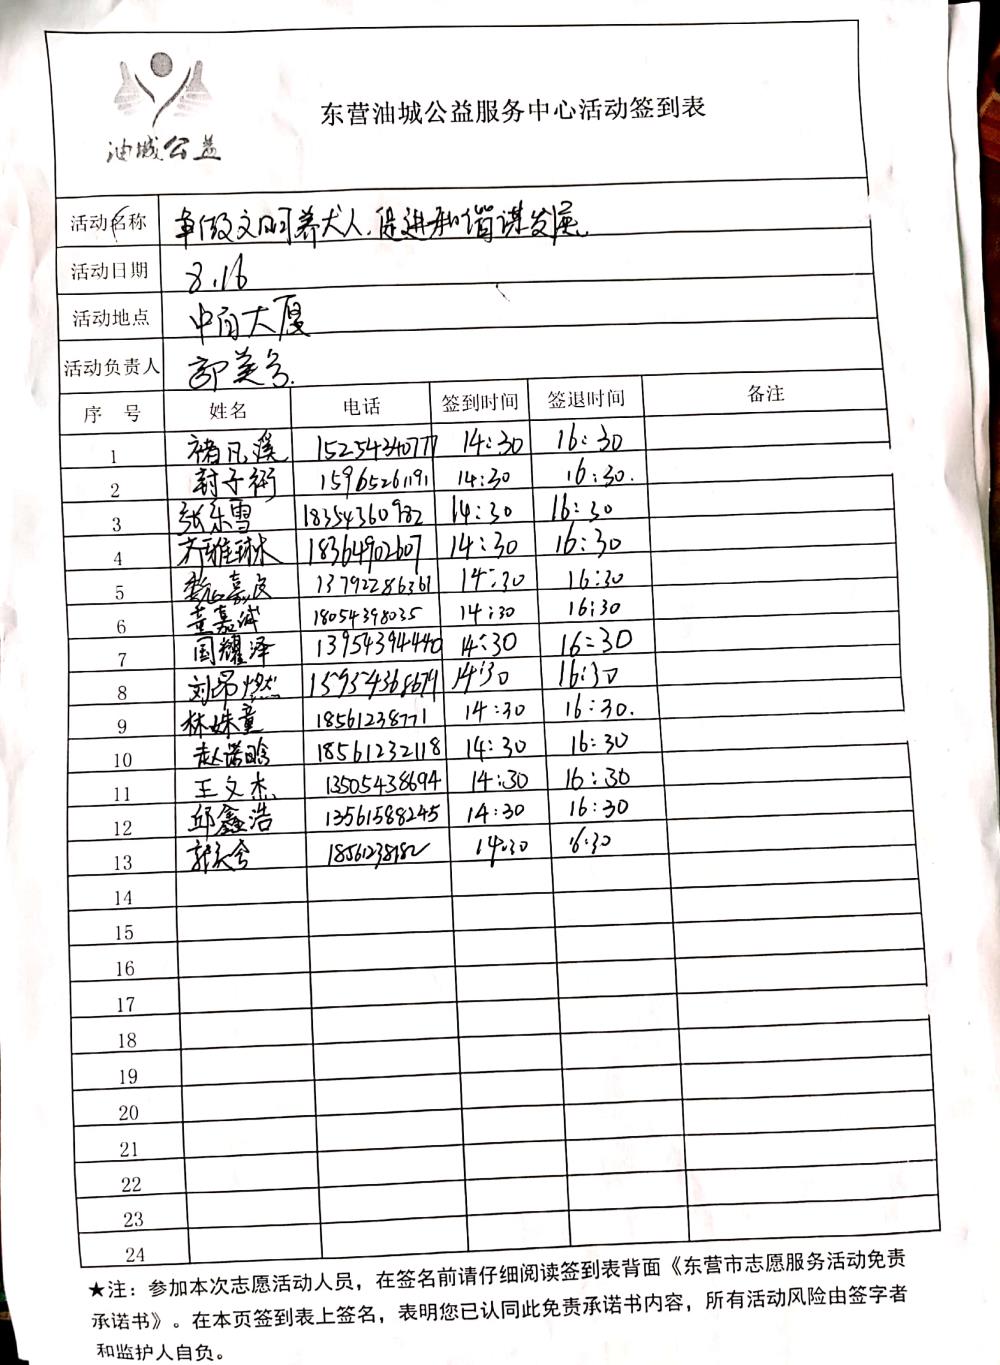 油城公益
东营油城公益服务中心活动签到表
活动名称 争做文明养犬人,促进和谐谋发展
活动日期 8.16
活动地点 中百大厦
活动负责人 郭美
序 号 姓名 电话 签到时间 签退时间 备注
1 褚凡溪 15254340777 14:30 16:30
2 封子衔 15965261191 14:30 16:30.
3 张乐雪 18354360982 14:30 16:30
4 齐雅琳 18364902607 14:30 16:30
5 嘉 13792286361 14:30 16:30
6 董嘉诚 18054398035 14:30 16:30
7 国耀泽 13954394440 14:30 16:30
8 刘昂燃 15954368679 14:30 16:30
9 林姝童 18561238771 14:30 16:30.
10 赵诺晗 18561232118 14:30 16:30
11 王文杰 13505438694 14:30 16:30
12 邱鑫浩 13561588245 14:30 16:30
13 14:30 6:30
14
15
16
17
18
19
20
21
22
23
24
★注:参加本次志愿活动人员,在签名前请仔细阅读签到表背面《东营市志愿服务活动免责
承诺书》。在本页签到表上签名,表明您已认同此免责承诺书内容,所有活动风险由签字者
和监护人自负。